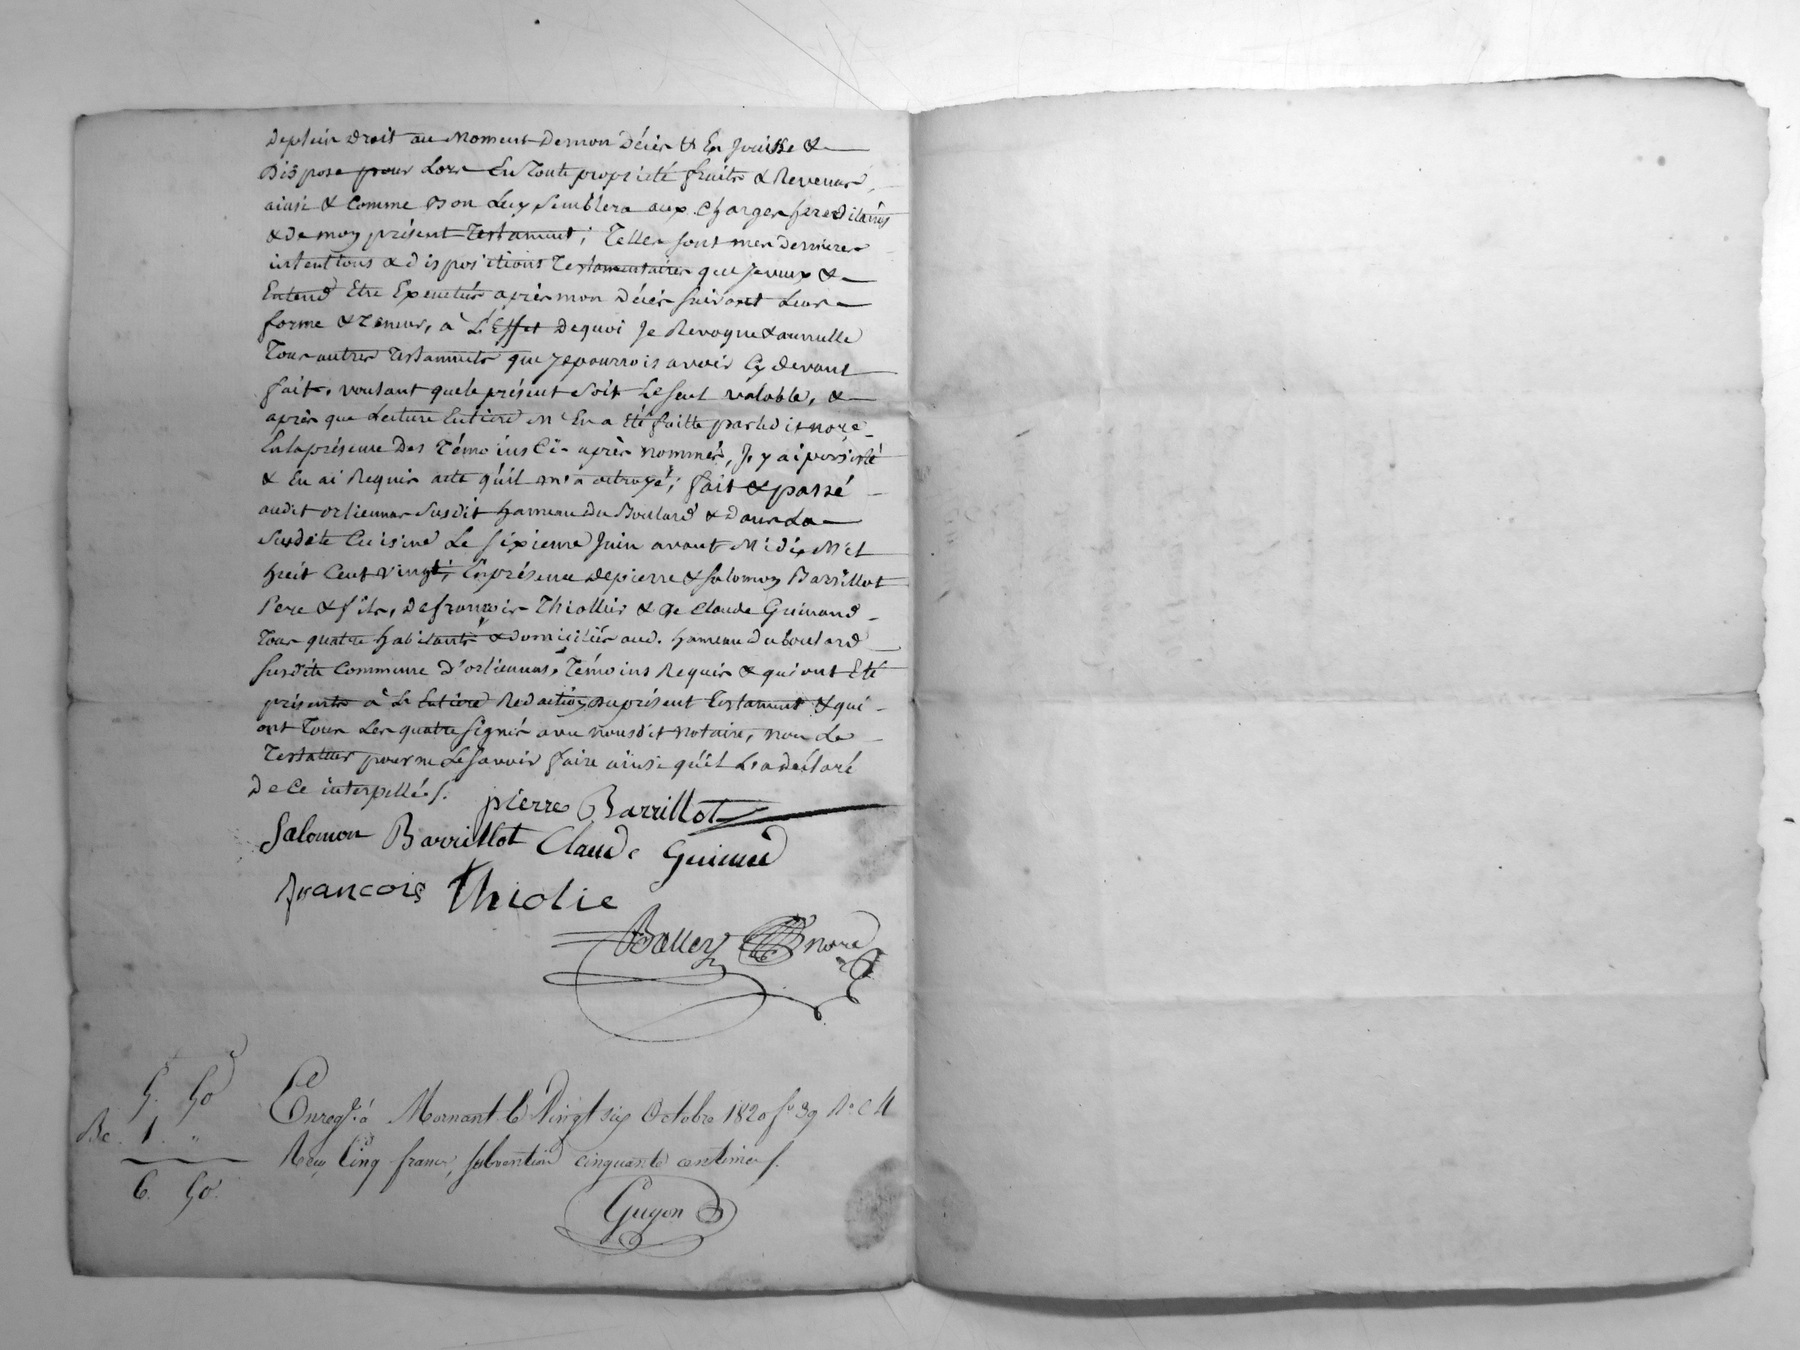 deplein droit au moment de mon Décès & En Jouisse &
Dispose pour Lors En Toute propriété fruits & Revenus,
ainsi & Comme Bon Luy Semblera aux Charges hereditaires
& de moy présent Testament; Telles sont mes dernieres
intentions & dispositions Testamentaires que je veux &
Entend Etre Executés après mon Décès suivant Leur
forme & Teneur, à L'Effet de quoi Je Revoque & annulle
Tous autres Testaments que je pourrois avoir Cy devant
fait, voulant que le présent soit Le seul valable, &
après que Lecture Entiere M'En a Eté faitte par ledit nore.
En la présence Des Témoins Ci-après nommés, Jy ai persisté
& En ai Requis acte qu'il m'a octroyé; fait & passé
audit orliennas susdit hameau du Boulard & dans La
Susdite Cuisine Le sixieme Juin avant Midi, Mil
huit Cent vingt; En présence de pierre & salomon Barrillot
Pere & fils, de françois Thiollier & de Claude Guinand
Tous quatre habitants & domiciliés aud. hameau du boulard
susdite Commune d'orliennas, Témoins Requis & qui ont Eté
présents à La Entiere Redaction du présent Testament & qui
ont Tous Les quatre signés avec nousdit notaire, non Le
Testateur pour ne Le savoir faire ainsi qu'il L'a déclaré
De Ce interpellé.
pierre Barrillot
Salomon Barrillot Claude Guinand
françois Thiolie
nore
5. 50
Enregt. à Mornant le Vingt six Octobre 1820 fo 39 Ro C 4
Be. 1. "
Reçu Cinq francs, subvention cinquante centimes.
6. 50.
Guyon